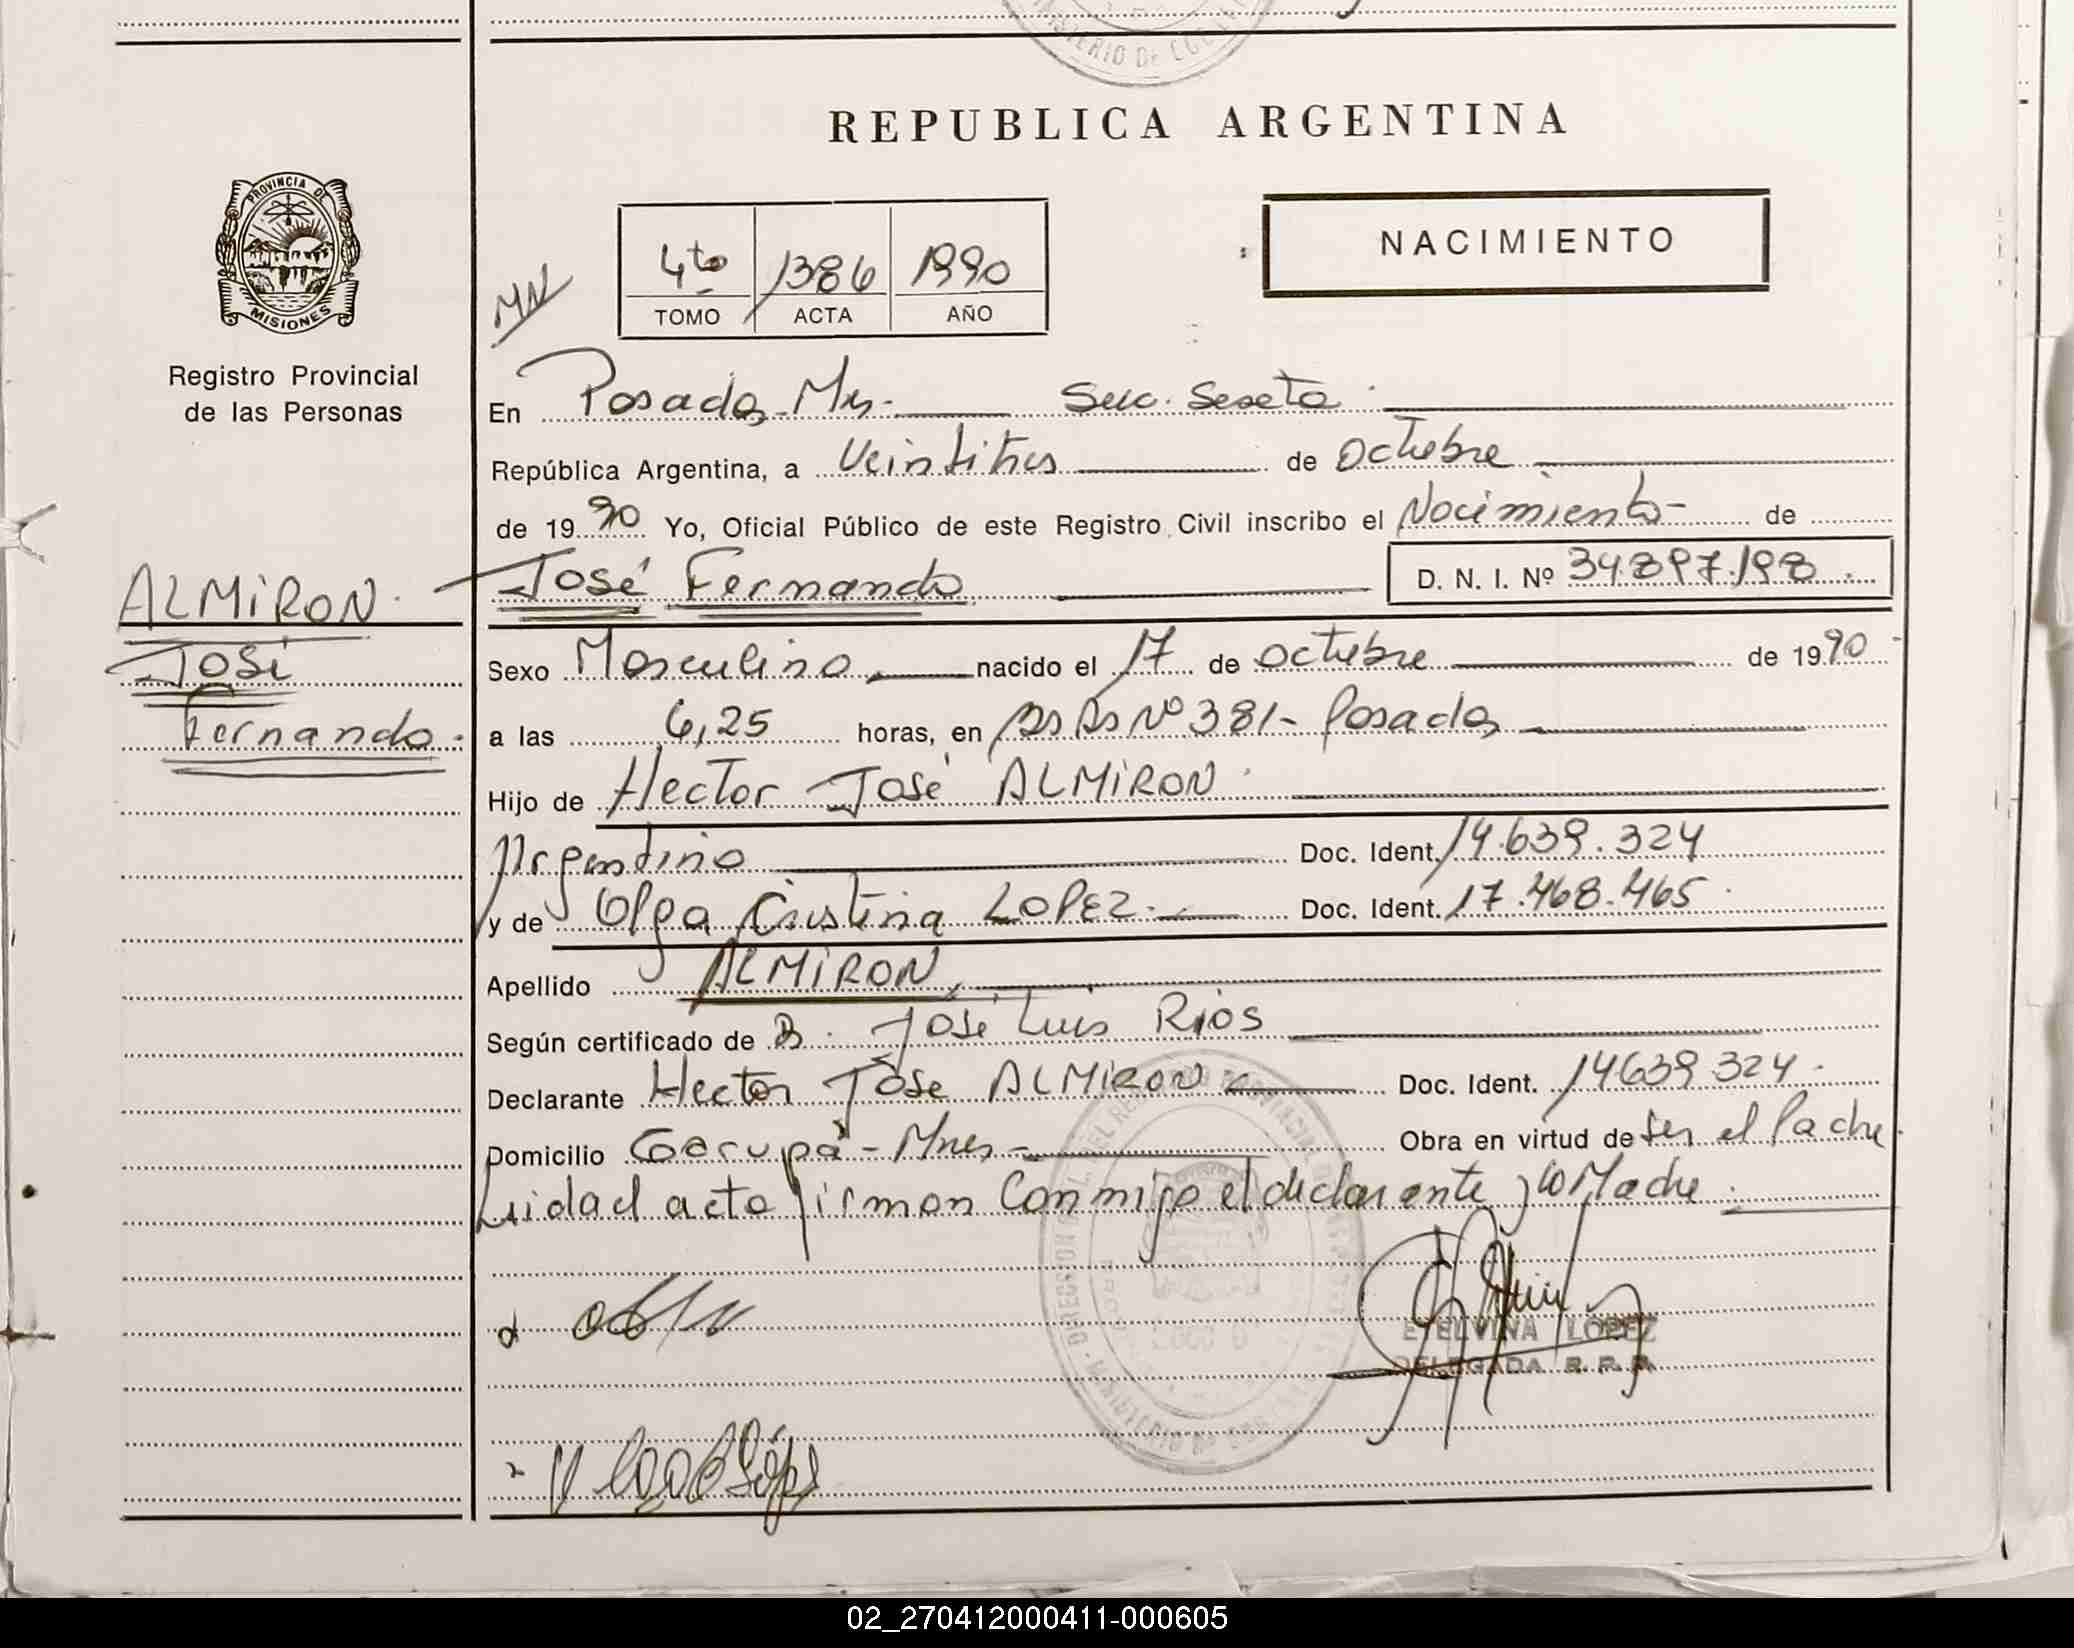 REPUBLICA ARGENTINA
PROVINCIA DE
MISIONES
Registro Provincial
de las Personas
4to 1386 1990
TOMO ACTA AÑO
NACIMIENTO
En Posadas Mns. Secc. Sexta
República Argentina, a Veintitres de Octubre
de 1990 Yo, Oficial Público de este Registro Civil inscribo el Nacimiento de
ALMIRON.
José
Fernando.
José Fernando D. N. I. Nº 34.897.198
Sexo Masculino nacido el 17 de Octubre de 1990
a las 6,25 horas, en Nº 381- Posadas
Hijo de Hector José ALMIRON
Argentino Doc. Ident. 14.639.324
y de Olga Cristina LOPEZ. Doc. Ident. 17.468.465
Apellido ALMIRON
Según certificado de José Luis Rios
Declarante Hector José ALMIRON Doc. Ident. 14639324
Domicilio Garupá - Mnes Obra en virtud de Ser el Padre
Leida el acta firman Conmigo el declarante y la Madre
ETELVINA LOPEZ
DELEGADA R. P. P.
02_270412000411-000605